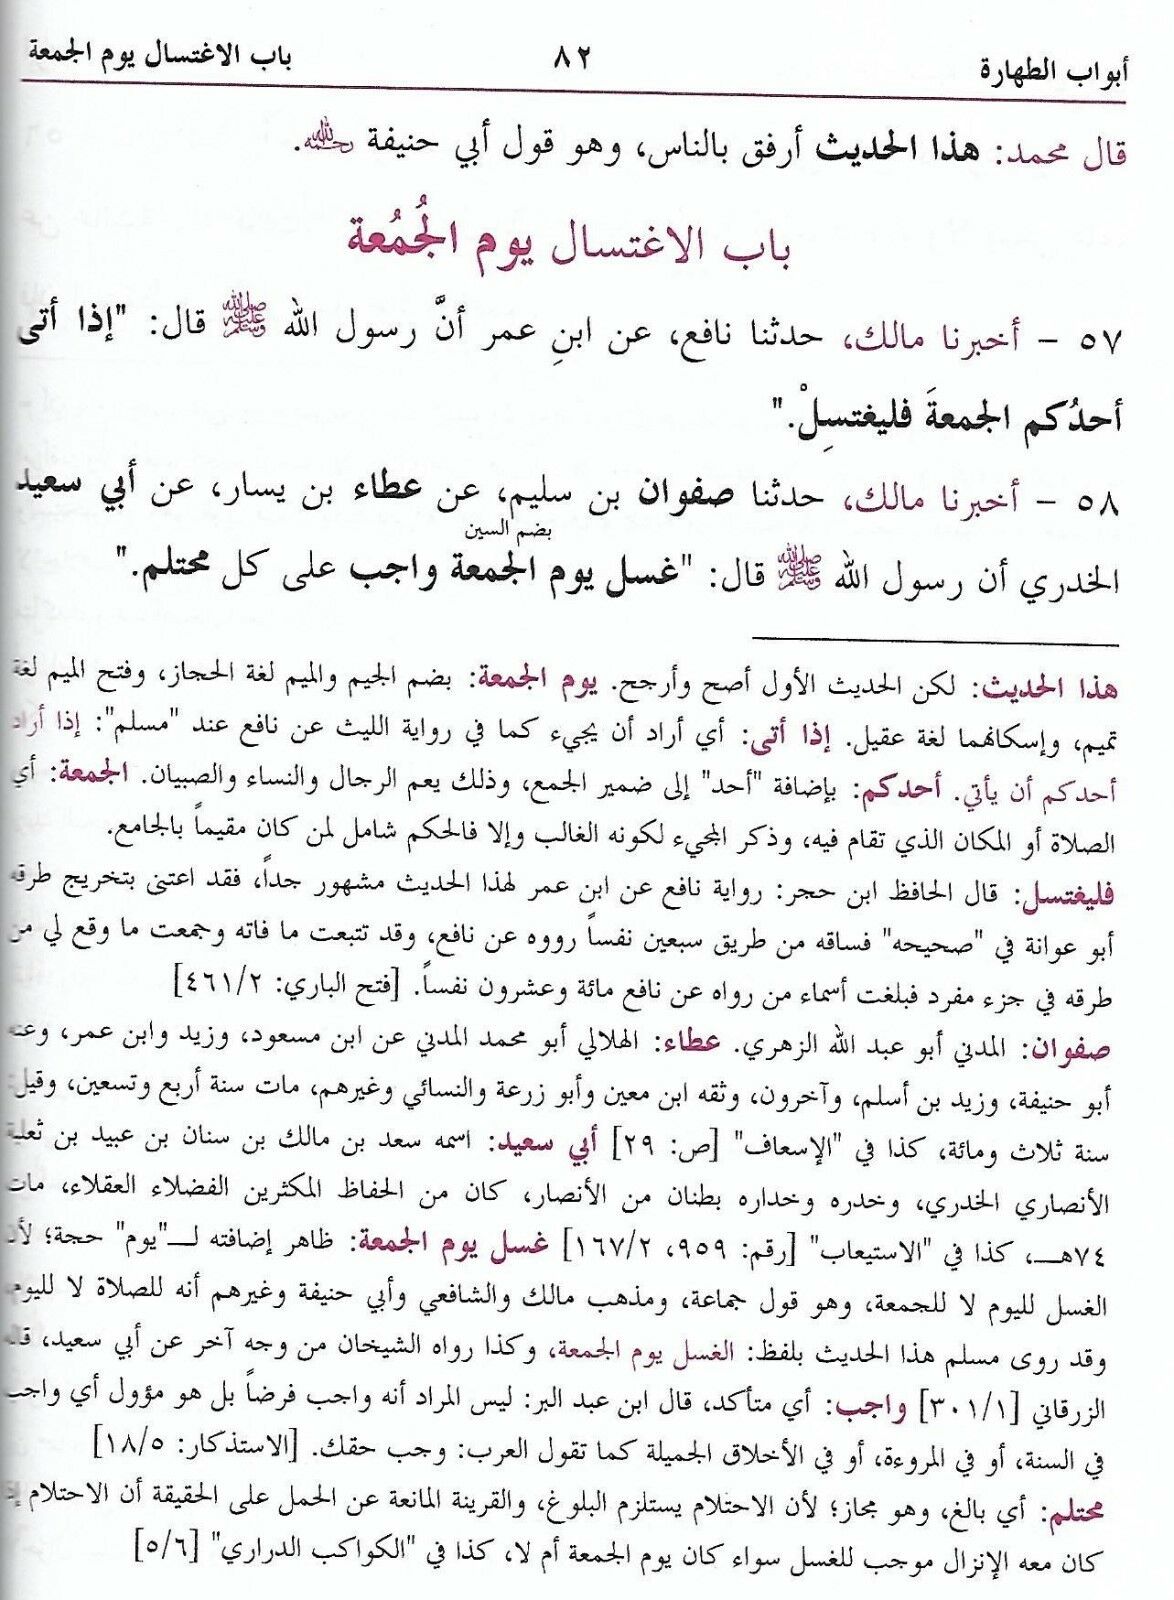 أبواب الطهارة ٨٢ باب الاغتسال يوم الجمعة
قال محمد: هذا الحديث أرفق بالناس، وهو قول أبي حنيفة رحمه الله.
باب الاغتسال يوم الجُمُعة
٥٧ - أخبرنا مالك، حدثنا نافع، عن ابنِ عمر أنَّ رسول الله ﷺ قال: "إذا أتى
أحدُكم الجمعةَ فليغتسِلْ."
٥٨ - أخبرنا مالك، حدثنا صفوان بن سليم، عن عطاء بن يسار، عن أبي سعيد
بضم السين
الخدري أن رسول الله ﷺ قال: "غسل يوم الجمعة واجب على كل محتلم."
هذا الحديث: لكن الحديث الأول أصح وأرجح. يوم الجمعة: بضم الجيم والميم لغة الحجاز، وفتح الميم لغة
تميم، وإسكانهما لغة عقيل. إذا أتى: أي أراد أن يجيء كما في رواية الليث عن نافع عند "مسلم": إذا أراد
أحدكم أن يأتي. أحدكم: بإضافة "أحد" إلى ضمير الجمع، وذلك يعم الرجال والنساء والصبيان. الجمعة: أي
الصلاة أو المكان الذي تقام فيه، وذكر المجيء لكونه الغالب وإلا فالحكم شامل لمن كان مقيماً بالجامع.
فليغتسل: قال الحافظ ابن حجر: رواية نافع عن ابن عمر لهذا الحديث مشهور جداً، فقد اعتنى بتخريج طرقه
أبو عوانة في "صحيحه" فساقه من طريق سبعين نفساً رووه عن نافع، وقد تتبعت ما فاته وجمعت ما وقع لي من
طرقه في جزء مفرد فبلغت أسماء من رواه عن نافع مائة وعشرون نفساً. [فتح الباري: ٤٦١/٢]
صفوان: المدني أبو عبد الله الزهري. عطاء: الهلالي أبو محمد المدني عن ابن مسعود، وزيد وابن عمر، وعنه
أبو حنيفة، وزيد بن أسلم، وآخرون، وثقه ابن معين وأبو زرعة والنسائي وغيرهم، مات سنة أربع وتسعين، وقيل:
سنة ثلاث ومائة، كذا في "الإسعاف" [ص: ٢٩] أبي سعيد: اسمه سعد بن مالك بن سنان بن عبيد بن ثعلبة
الأنصاري الخدري، وخدره وخداره بطنان من الأنصار، كان من الحفاظ المكثرين الفضلاء العقلاء، مات
٧٤هـ، كذا في "الاستيعاب" [رقم: ٩٥٩، ١٦٧/٢] غسل يوم الجمعة: ظاهر إضافته لـ"يوم" حجة؛ لأن
الغسل لليوم لا للجمعة، وهو قول جماعة، ومذهب مالك والشافعي وأبي حنيفة وغيرهم أنه للصلاة لا لليوم،
وقد روى مسلم هذا الحديث بلفظ: الغسل يوم الجمعة، وكذا رواه الشيخان من وجه آخر عن أبي سعيد، قاله
الزرقاني [٣٠١/١] واجب: أي متأكد، قال ابن عبد البر: ليس المراد أنه واجب فرضاً بل هو مؤول أي واجب
في السنة، أو في المروءة، أو في الأخلاق الجميلة كما تقول العرب: وجب حقك. [الاستذكار: ١٨/٥]
محتلم: أي بالغ، وهو مجاز؛ لأن الاحتلام يستلزم البلوغ، والقرينة المانعة عن الحمل على الحقيقة أن الاحتلام إذا
كان معه الإنزال موجب للغسل سواء كان يوم الجمعة أم لا، كذا في "الكواكب الدراري" [٥/٦]